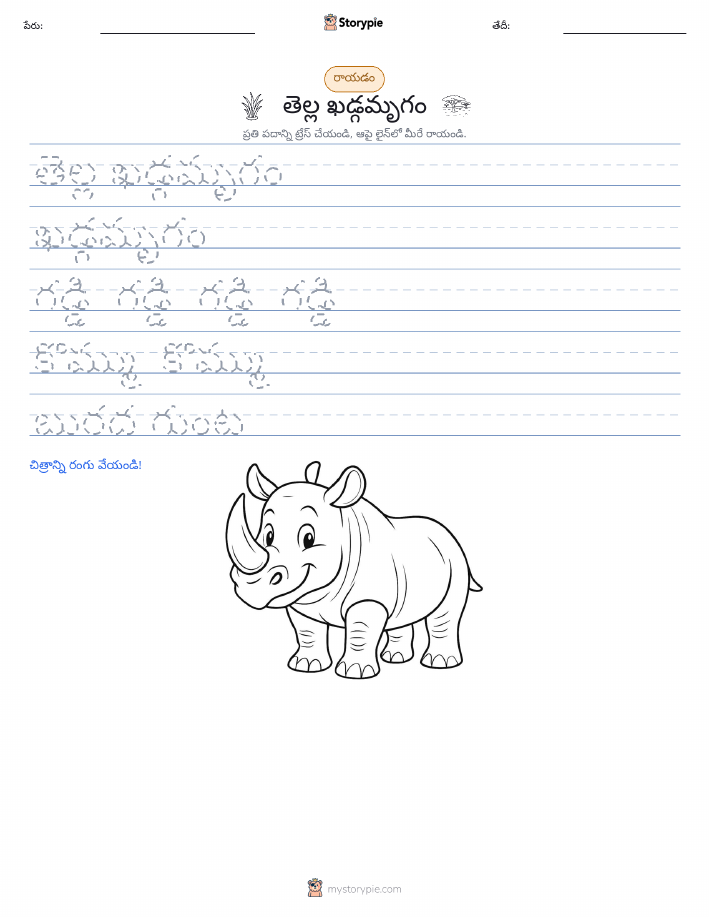 పేరు:
Storypie
తేదీ:
రాయడం
తెల్ల ఖడ్గమృగం
ప్రతి పదాన్ని ట్రేస్ చేయండి, ఆపై లైన్‌లో మీరే రాయండి.
తెల్ల ఖడ్గమృగం
ఖడ్గమృగం
గడ్డి గడ్డి గడ్డి గడ్డి
కొమ్ము కొమ్ము
బురద గుంట
చిత్రాన్ని రంగు వేయండి!
mystorypie.com